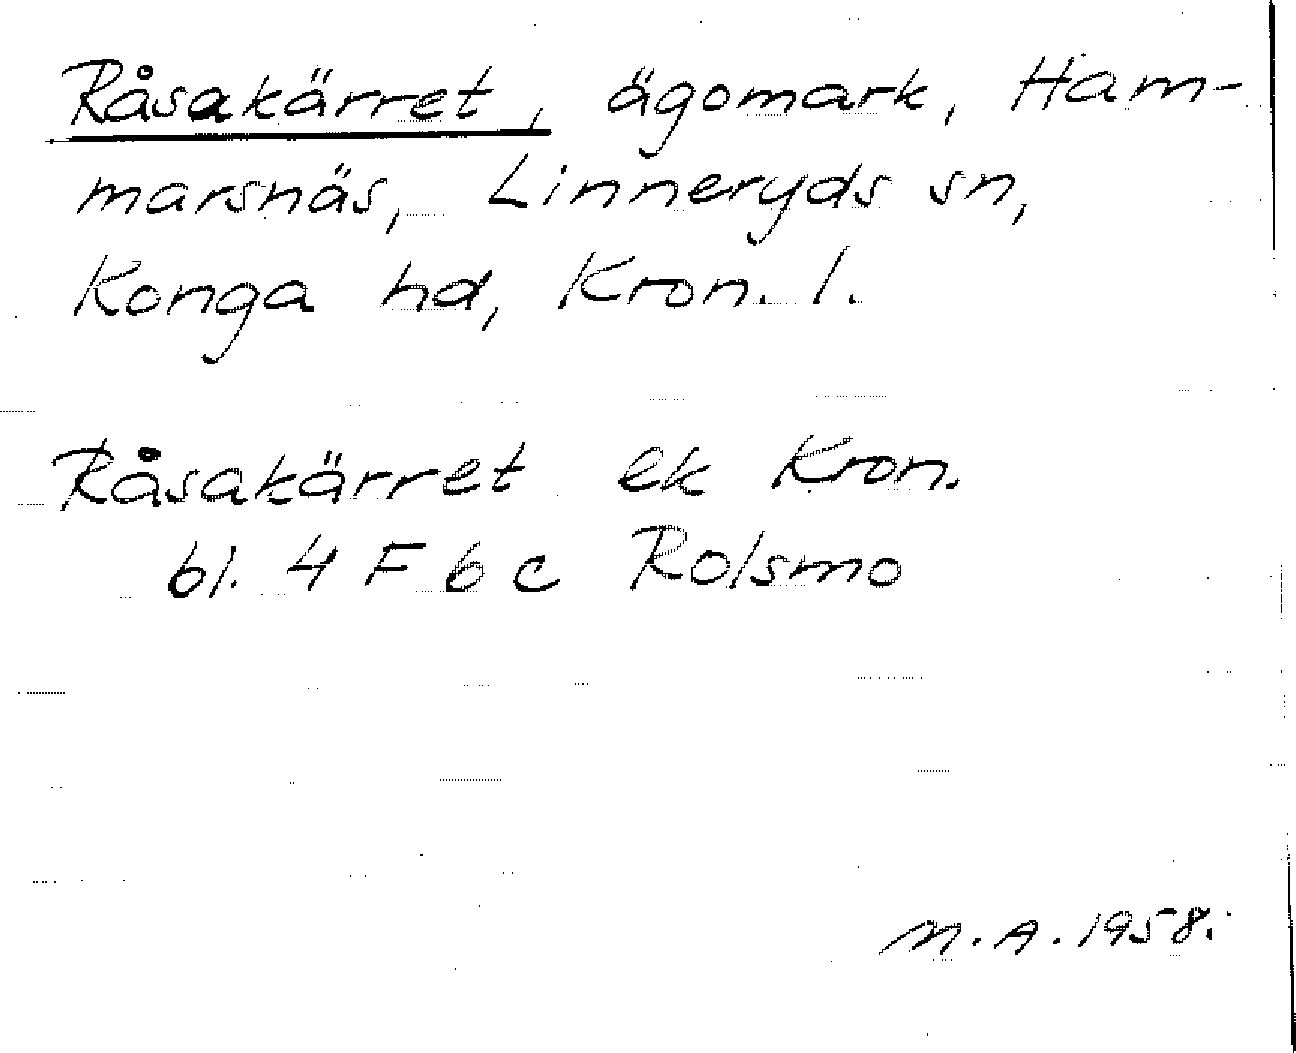 Råsakärret, ägomark, Ham-
marsnäs, Linneryds sn,
Konga hd, Kron. l.
Råsakärret ek Kron.
bl. 4 F 6 c Rolsmo
N.A. 1958.